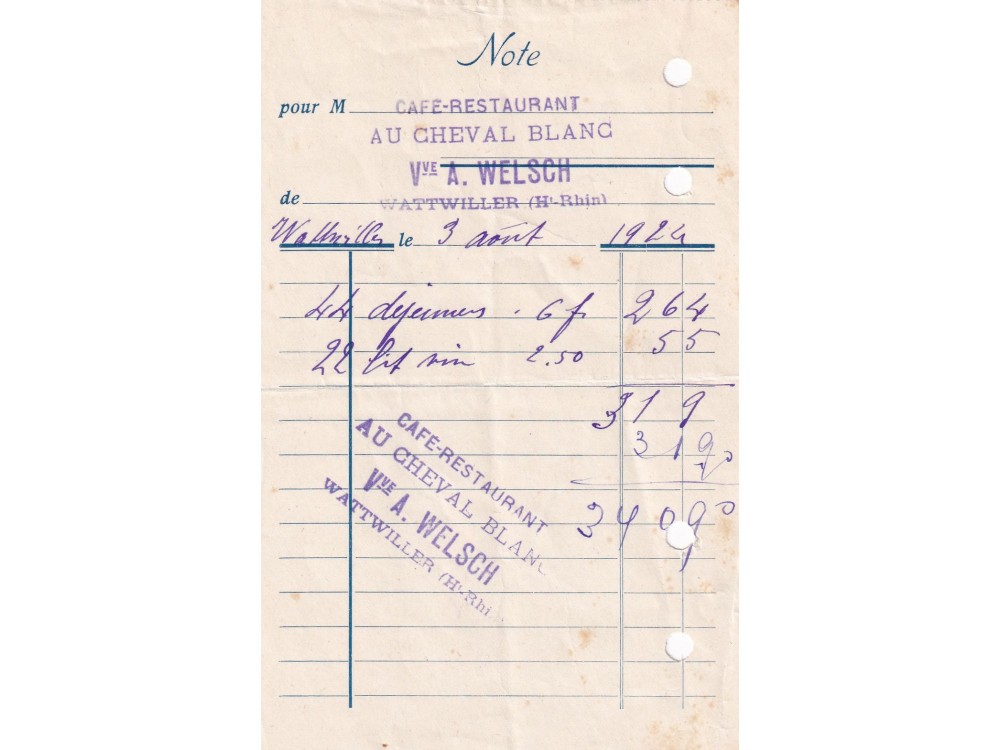 Note
pour M CAFÉ-RESTAURANT
AU CHEVAL BLANC
Vve A. WELSCH
de WATTWILLER (Ht-Rhin)
Wattwiller le 3 août 1924
44 déjeuners . 6 f 264
22 lit vin 2.50 55
319
31 90
340 90
CAFÉ-RESTAURANT
AU CHEVAL BLANC
Vve A. WELSCH
WATTWILLER (Ht-Rhi